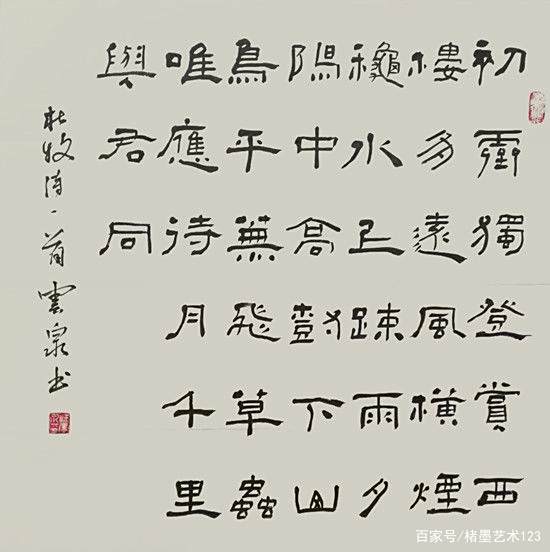 初霽獨登賞西
樓多遠風橫煙
穐水上疎雨夕
陽中高樹下山
鳥平蕪飛草蟲
唯應待月千里
與君同
杜牧詩一首雲泉书
百家号/楮墨艺术123